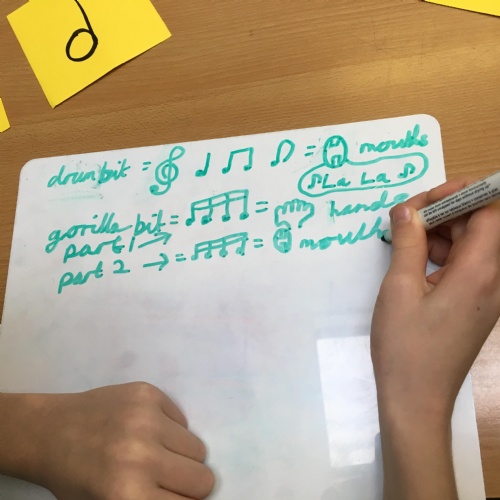 d
drum bit = 𝄞 ♩ ♫ ♪ = mouths
♪ La La ♪
gorilla bit = ♬ = hands
part 1 →
part 2 → = ♬ = mouth